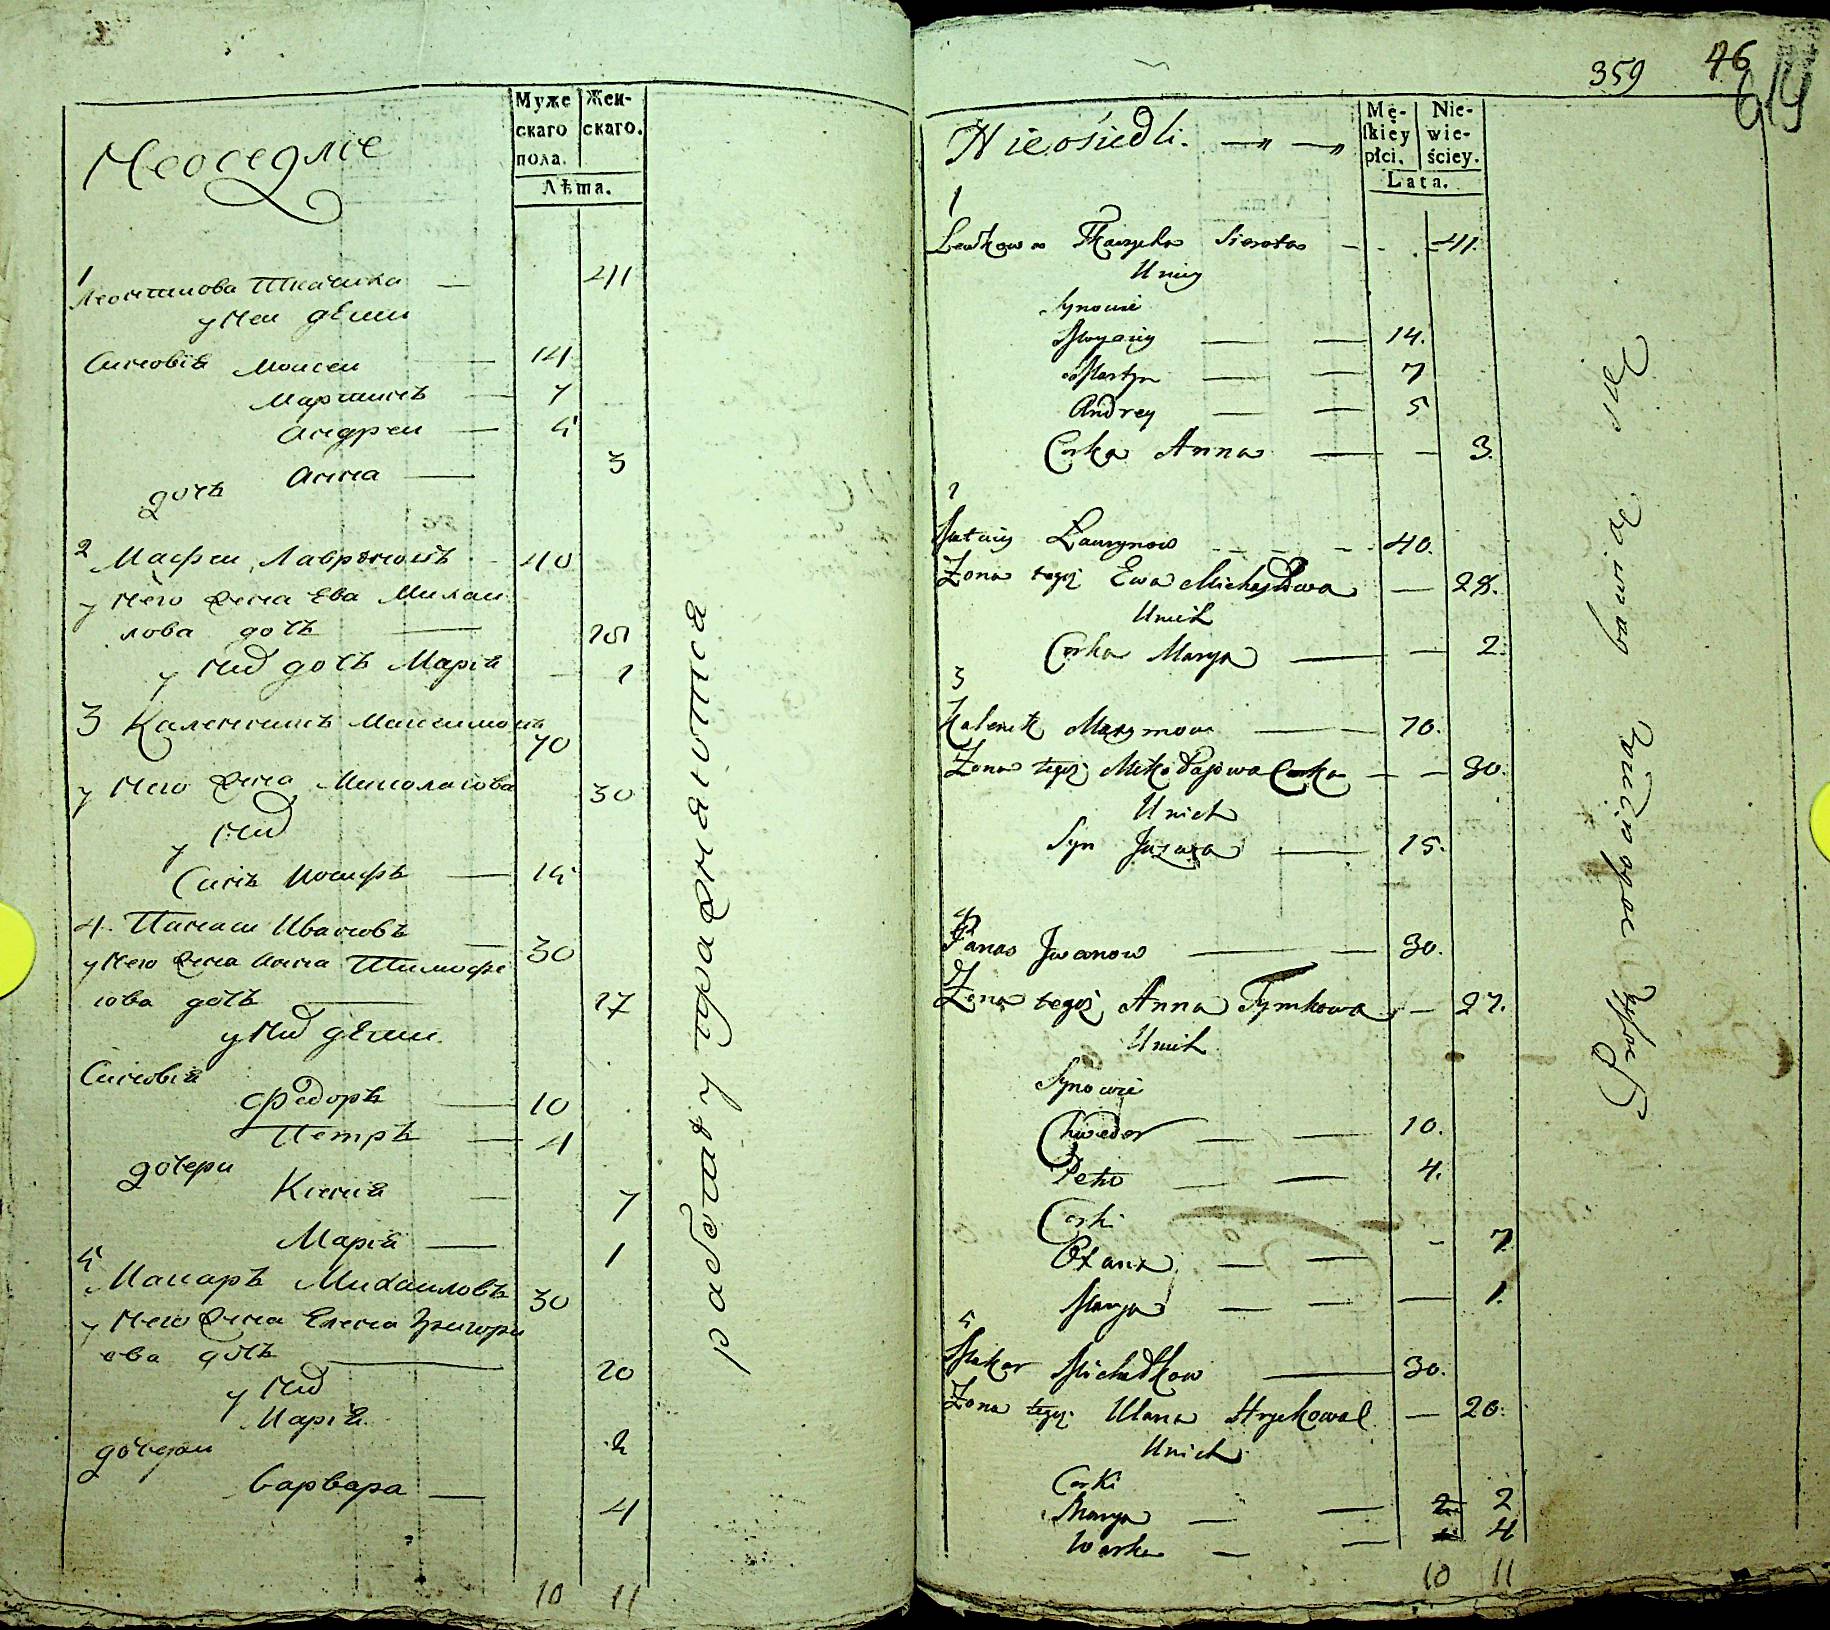 Муже
скаго
пола.
Жен-
скаго.
Лѣта.
Неоседлие
1
Леонтиова Ткачиха — 41
у Неи дѣти
Синовiѣ Моисеи — 14
Мартинъ — 7
Андреи — 5
дочь Анна — 3
2 Матфеи Лавриновъ - 40
у Него Жена Ева Михаи
лова дочъ — 28
у Них дочъ Марiя — 2
3 Каленникъ Максимовъ 70
у Него Жена Николаиова 30
у Них
Синъ Иосифъ — 15
4. Панаси Ивановъ — 30
у Него Жена Анна Тимофе
iова дочъ — 27
у Них дѣти.
Синовiя
Федоръ — 10
Петръ — 4
дочери
Ксения — 7
Марiя — 1
5
Макаръ Михаиловъ 30
у Него Жена Елена Григори
ева дочъ — 20
у Них
Марiя 2
дочери
Варвара — 4
10 11
работаю упражняются
359 46
614
Mę-
skiey
płci.
Nie-
wie-
ściey.
Lata.
Nieośiedli. — „ — „
1
Lewkowa Tkaczycha Sierota - - 41.
U niey
Synowie
Moyżiey — — 14.
Martyn — — 7
Andrey — — 5
Corka Anna — - 3.
2
Matwiey Laurynow - - - 40.
Zona tegoż Ewa Michayłowa — 28.
U nich
Corka Marya — — 2.
3
Kalenik Maxymow — — 70.
Zona tegoż Mikołajowa Corka — — 30.
U nich
Syn Juzefa — 15.
4
Panas Jwanow — — 30.
Zona tegoż Anna Tymkowa — 27.
U nich
Synowie
Chwedor — — 10.
Petro — — 4.
Corki
Oxana — — - 7.
Marya — — — 1.
5
Makar Michałkow — 30.
Zona tegoż Ulana Hryckowa — 20.
U nich
Corki
Marya — — 2
Warka — — 4
10 11
Robotą rolniczą bawiąc się